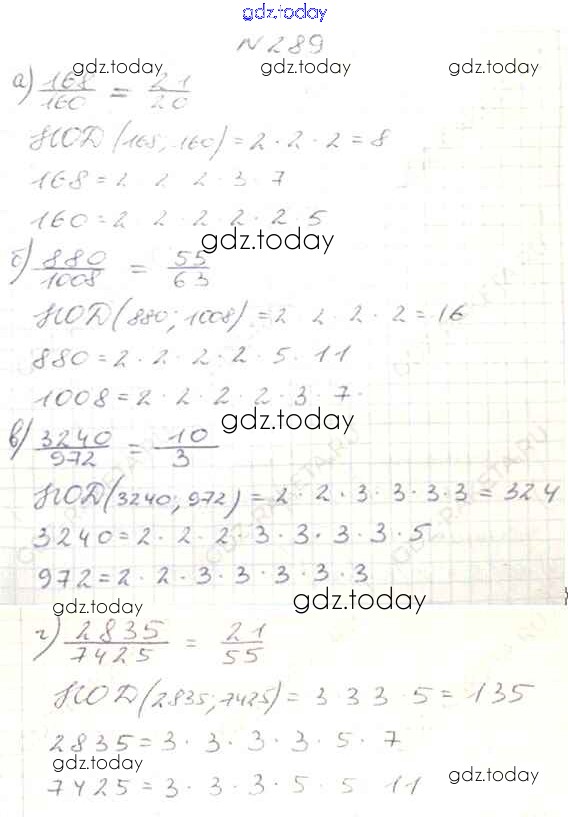 gdz.today
№289
gdz.today gdz.today gdz.today
а) 168/160 = 21/20
НОД (168; 160) = 2 · 2 · 2 = 8
168 = 2 2 2 · 3 · 7
160 = 2 2 · 2 · 2 · 2 · 5
gdz.today
б) 880/1008 = 55/63
НОД (880; 1008) = 2 2 · 2 · 2 = 16
880 = 2 · 2 · 2 · 2 · 5 · 11
1008 = 2 · 2 · 2 · 2 · 3 · 7 ·
gdz.today
в) 3240/972 = 10/3
НОД (3240; 972) = 2 · 2 · 3 · 3 · 3 · 3 = 324
3240 = 2 · 2 · 2 · 3 · 3 · 3 · 3 · 5
972 = 2 · 2 · 3 · 3 · 3 · 3 · 3
gdz.today gdz.today
г) 2835/7425 = 21/55
НОД (2835; 7425) = 3 3 3 · 5 = 135
2835 = 3 · 3 · 3 · 3 · 5 · 7
gdz.today gdz.today
7425 = 3 · 3 · 3 · 5 · 5 11